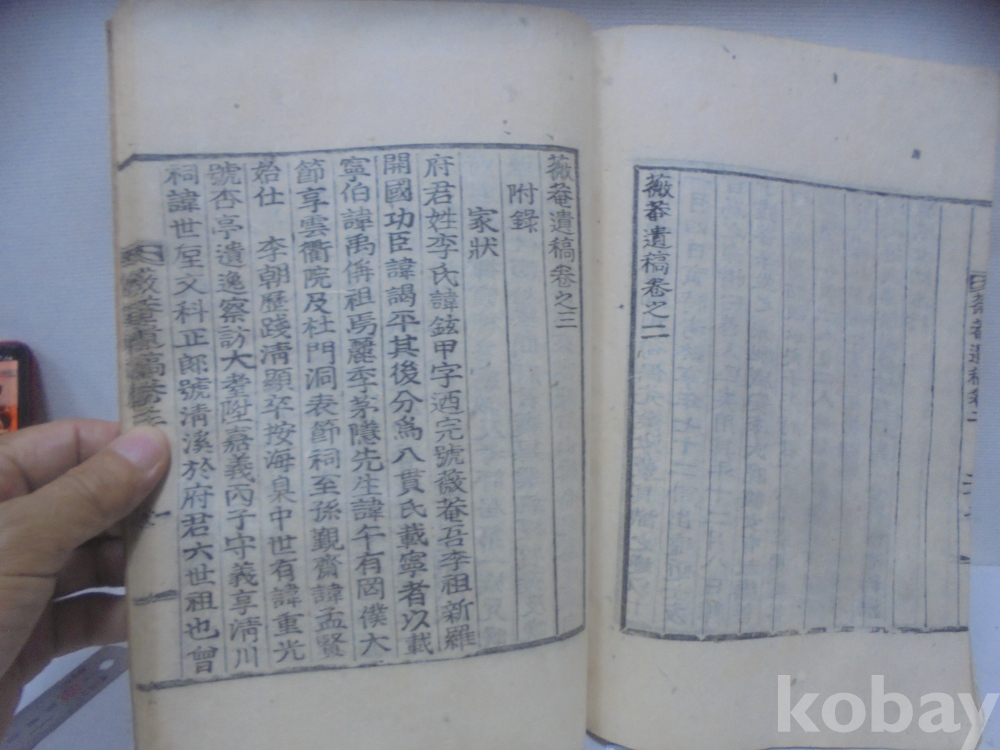 薇菴遺稿卷之二
薇菴遺稿卷之三
附録
家狀
府君姓李氏諱鉉甲字迺完號薇菴吾李祖新羅
開國功臣諱謁平其後分爲八貫氏載寧者以載
寧伯諱禹偁祖焉麗季茅隱先生諱午有罔僕大
節享雲衢院及杜門洞表節祠至孫覲齋諱孟賢
始仕 李朝歷踐清顯卒按海臬中世有諱重光
號杏亭遺逸察訪大耋陞嘉義丙子守義享清川
祠諱世垕文科正郎號清溪於府君六世祖也曾
kobay